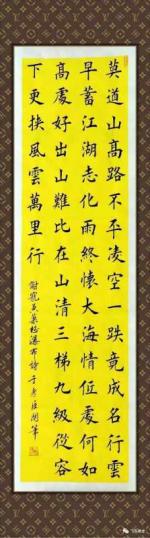 莫道山高路不平凌空一跌竟成名行雲
早蓄江湖志化雨終懷大海情位處何如
高處好出山難比在山清三梯九級從容
下更挾風雲萬里行
瀑布詩